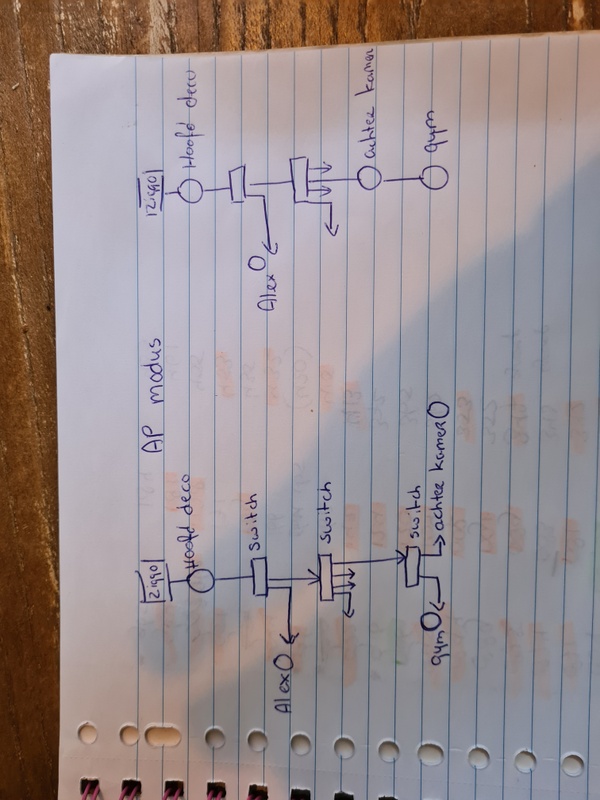 AP modus
Ziggo
Hoofd deco
switch
Alex
switch
switch
gym
achter kamer
Ziggo
Hoofd deco
Alex
achter kamer
gym